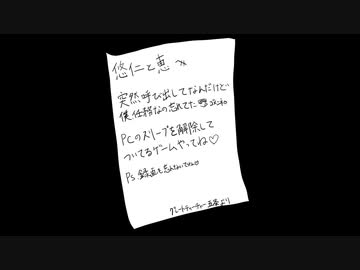 悠仁と恵へ
突然呼び出してなんだけど
僕任務なの忘れてた
PCのスリープを解除して
ついてるゲームやってね♡
P.S. 録画も忘れないでね
グレートティーチャー五条より